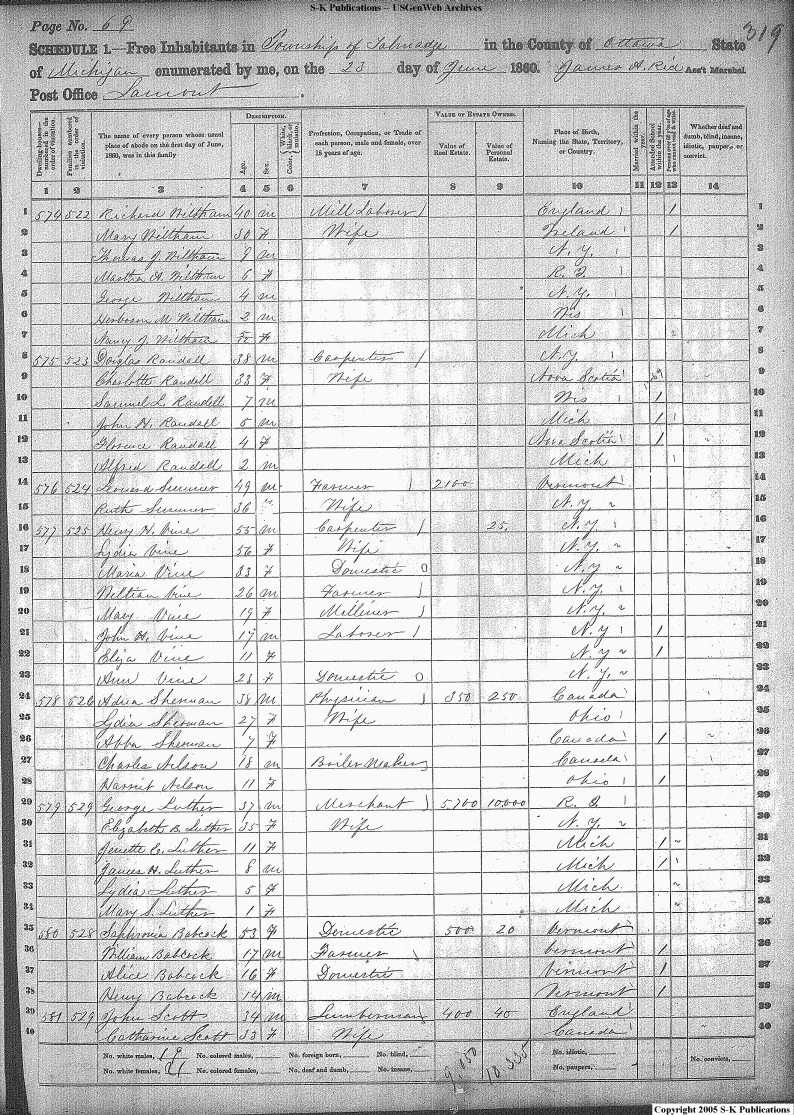 S-K Publications – USGenWeb Archives
Page No. 69
319
SCHEDULE 1.—Free Inhabitants in Township of Talmadge in the County of Ottawa State
of Michigan enumerated by me, on the 23 day of June 1860. James A. Rice Ass't Marshal.
Post Office Lamont.
Dwelling-houses—numbered in the order of visitation.
Families numbered in the order of visitation.
The name of every person whose usual place of abode on the first day of June, 1860, was in this family
DESCRIPTION.
Age.
Sex.
Color, White, black, or mulatto.
Profession, Occupation, or Trade of each person, male and female, over 15 years of age.
VALUE OF ESTATE OWNED.
Value of Real Estate.
Value of Personal Estate.
Place of Birth, Naming the State, Territory, or Country.
Married within the year.
Attended School within the year.
Whether deaf and dumb, blind, insane, idiotic, pauper, or convict.
1 2 3 4 5 6 7 8 9 10 11 12 13 14
1 574 522 Richard Wiltham 40 m Mill Laborer / England 1 / 1
2 Mary Wiltham 30 F Wife Ireland 1 / 2
3 Thomas J. Wiltham 9 m N.Y. 3
4 Martha A. Wiltham 6 F R. I. 4
5 George Wiltham 4 m N.Y. 5
6 M. Wiltham 2 m Wis 6
7 Nancy J. Wiltham F Mich 7
8 575 523 Douglas Randall 38 m Carpenter / N.Y. 8
9 Charlotte Randall 33 F Wife Nova Scotia 9
10 Samuel L. Randall 7 m Wis / 10
11 John H. Randall 5 m Mich / 11
12 Florence Randall 4 F Nova Scotia / 12
13 Alfred Randall 2 m Mich 13
14 576 524 Leonard Sumner 49 m Farmer / 2100 Vermont 14
15 Ruth Sumner 36 " Wife N.Y. 15
16 577 525 Henry H. Vine 55 m Carpenter / 25 N.Y. 16
17 Lydia Vine 56 F Wife N.Y. 17
18 Maria Vine 33 F Domestic 0 N.Y. 18
19 William Vine 26 m Farmer / N.Y. 19
20 Mary Vine 19 F Millener / N.Y. 20
21 John H. Vine 17 m Laborer / N.Y / 21
22 Eliza Vine 11 F N.Y / 22
23 Ann Vine 23 F Domestic 0 N.Y. 23
24 578 526 Sherman 38 m Physician / 350 250 Canada 24
25 Lydia Sherman 27 F Wife Ohio 25
26 Abba Sherman 7 F Canada / 26
27 Charles Nelson 18 m Boiler Maker Canada 27
28 Harriet Nelson 11 F Ohio / 28
29 579 529 George Luther 37 m Merchant / 5,700 10,000 R. I. 29
30 Elizabeth B. Luther 35 F Wife N.Y. 30
31 Jenette C. Luther 11 F Mich / 31
32 James H. Luther 8 m Mich / 32
33 Lydia Luther 5 F Mich 33
34 Mary S. Luther 1 F Mich 34
35 580 528 Saphronia Babcock 53 F Domestic 500 20 Vermont 35
36 William Babcock 17 m Farmer Vermont / 36
37 Alice Babcock 16 F Domestic Vermont / 37
38 Henry Babcock 14 m Vermont / 38
39 581 529 John Scott 34 m Lumberman 400 40 England 39
40 Catharine Scott 33 F Wife Canada 40
No. white males, 19 No. colored males, No. foreign born, No. blind, 9,050 10,335 No. idiotic, No. convicts,
No. white females, 21 No. colored females, No. deaf and dumb, No. insane, No. paupers,
Copyright 2005 S-K Publications